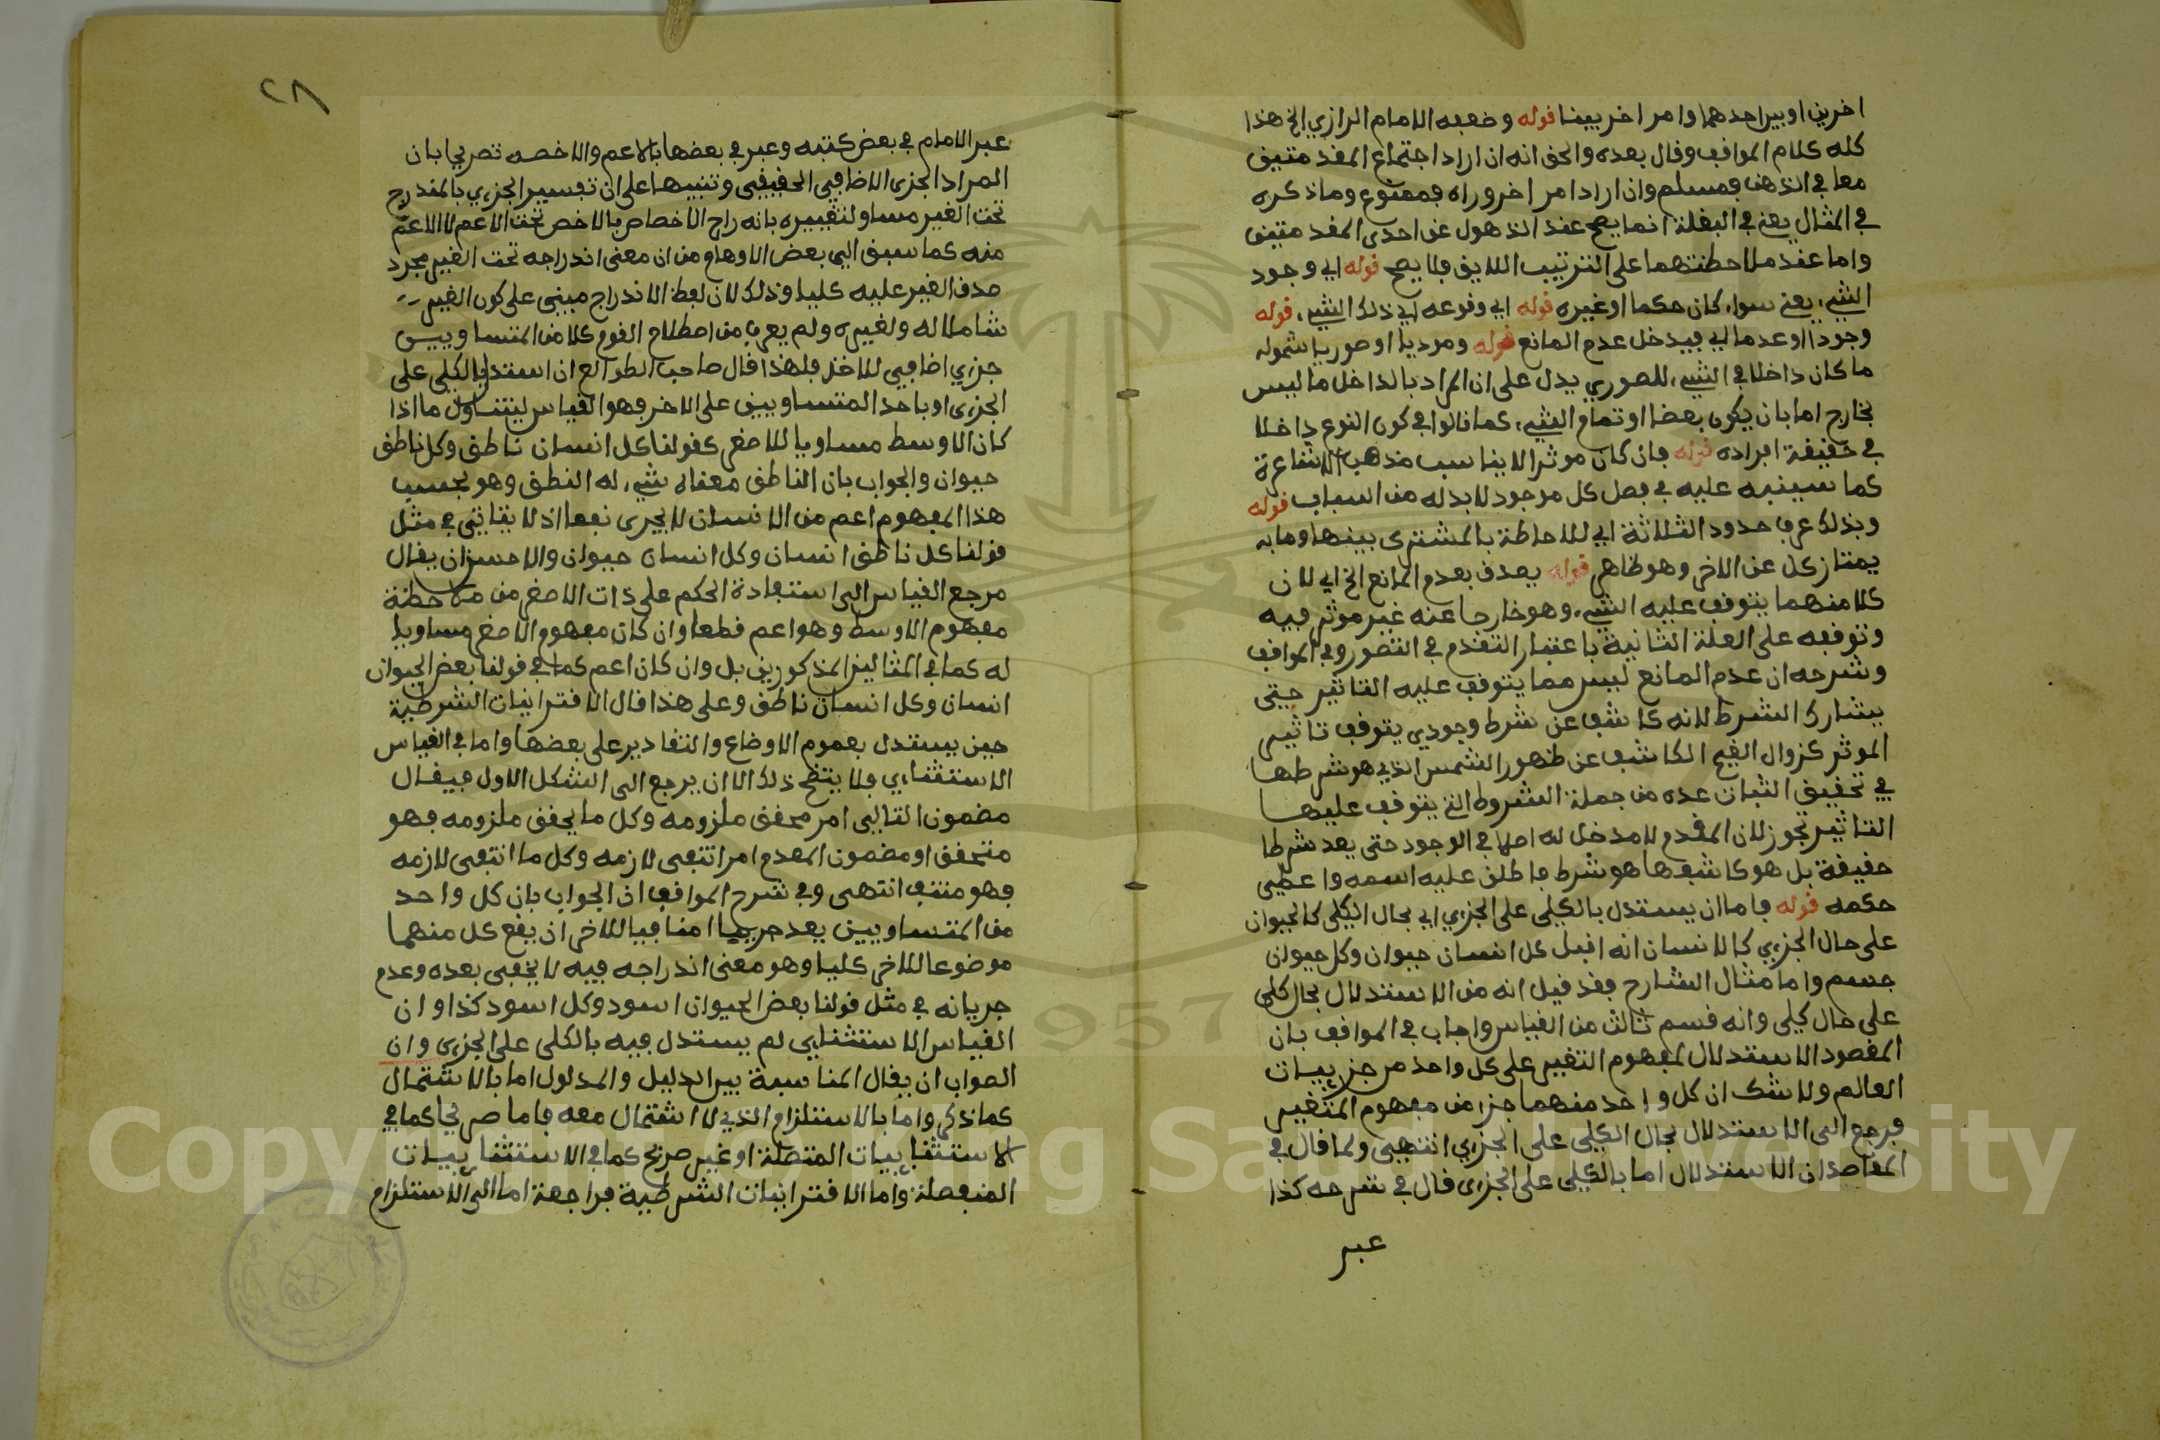 اخرين او بين احدهما وامر اخر بيننا قوله وضعفه الامام الرازي الخ هذا
كله كلام المواقف وقال بعده والحق انه ان اراد اجتماع المقدمتين
معا في الذهن فمسلم وان اراد امر اخر وراه فممنوع وما ذكره
في المثال يعني في البغلة انما يصح عند الذهول عن احدى المقدمتين
واما عند ملاحظتهما على الترتيب اللايق فلا يصح قوله اي وجود
الشيء يعني سواء كان حكما او غيره قوله اي وقوعه اي ذلك الشيء قوله
وجودا او عدما اي فيدخل عدم المانع قوله وموديا او صوريا شموله
ما كان داخلا في الشيء للصوري يدل على ان المراد بالداخل ما ليس
بخارج اما بان يكون بعضا او تمام الشيء كما قالوا في كون النوع داخلا
في حقيقة افراده قوله فان كان موثرا لا يناسب مذهب الاشاعرة
كما سينبه عليه في فصل كل موجود لا بد له من اسباب قوله
وبذلك عرف حدود الثلاثة اي للاحاطة بالمشترك بينها وما به
يمتاز كل عن الاخر وهو ظاهر قوله يصدق بعدم المانع الخ اي لان
كلا منهما يتوقف عليه الشيء وهو خارجا عنه غير موثر فيه
وتوقفه على العلة الثانية باعتبار التقدم في التصور وفي المواقف
وشرحه ان عدم المانع ليس مما يتوقف عليه التاثير حتى
يشارك الشرط لانه كاشف عن شرط وجودي يتوقف تاثير
الموثر كزوال الغيم الكاشف عن ظهور الشمس الذي هو شرطها
في تحقيق الثبات عده من جملة الشروط التي يتوقف عليها
التاثير تجوز لان المقدم لا مدخل له اصلا في الوجود حتى يعد شرطا
حقيقة بل هو كاشف عما هو شرط فاطلق عليه اسمه واعطي
حكمه قوله فاما ان يستدل بالكلي على الجزءي اي بحال الكلي كالحيوان
على حال الجزءي كالانسان انه اقبل كل انسان حيوان وكل حيوان
جسم واما مثال الشارح فقد قيل انه من الاستدلال بحال كلي
على حال كلي وانه قسم ثالث من القياس واجاب في المواقف بان
المقصود الاستدلال لمفهوم التغير على كل واحد من جزييات
العالم ولا شك ان كل واحد منهما جزء من مفهوم المتغير
فرجع الى الاستدلال بحال الكلي على الجزءي انتهى ولما قال في
المقاصد ان الاستدلال اما بالكلي على الجزءى قال في شرحه كذا
عبر
٢٨
عبر الامام في بعض كتبه وعبر في بعضها بالاعم والاخص تصريحا بان
المراد الجزى الاضافي الحقيقي وتنبيها على ان تفسير الجزءي بالمندرج
تحت الغير مساو لتفسيره بانه راج الاخص بالاخص تحت الاعم لا الاعم
منه كما سبق الى بعض الاوهام من ان معنى اندراجه تحت الغير مجرد
صدق الغير عليه كليا وذلك لان لفظ الاندراج مبني على كون الغير
شاملا له ولغيره ولم يعرف من اصطلاح القوم كلا من المتساويين
جزءي اضافي للاخر فلهذا قال صاحب الطوالع ان استدل بالكلي على
الجزءى او باحد المتساويين على الاخر فهو القياس ليتناول ما اذا
كان الاوسط مساويا للاصغر كقولنا كل انسان ناطق وكل ناطق
حيوان والجواب بان الناطق معناه شيء له النطق وهو بحسب
هذا المفهوم اعم من الانسان لا يجرى نفعا اذ لا يتاتى في مثل
قولنا كل ناطق انسان وكل انسان حيوان والاحسن ان يقال
مرجع القياس الى استفادة الحكم على ذات الاصغر من ملاحظة
مفهوم الاوسط وهو اعم قطعا وان كان مفهوم الاصغر مساويا
له كما في المثالين المذكورين بل وان كان اعم كما في قولنا بعض الحيوان
انسان وكل انسان ناطق وعلى هذا قال الاقترانيات الشرطية
حين يستدل بعموم الاوضاع والتقادير على بعضها واما في القياس
الاستثناءي فلا يتضح ذلك الا ان يرجع الى الشكل الاول فيقال
مضمون التالي امر محقق ملزومه وكل ما يحقق ملزومه فهو
متحقق او مضمون المقدم امر انتفى لازمه وكل ما انتفى لازمه
فهو منتف انتهى وفي شرح المواقف ان الجواب بان كل واحد
من المتساويين يعد جزءيا اضافيا للاخر ان يقع كل منهما
موضوعا للاخر كليا وهو معنى اندراجه فيه لا يخفى بعده وعدم
جريانه في مثل قولنا بعض الحيوان اسود وكل اسود كذا وان
القياس الاستثنايي لم يستدل فيه بالكلى على الجزءى وان
الصواب ان يقال المناسبة بين الدليل والمدلول اما بالاشتمال
كما ذكر واما بالاستلزام الذي لا اشتمال معه فاما صريحا كما في
الاستثناييات المتصلة او غير صريح كما في الاستثناييات
المنفصلة واما الاقترانيات الشرطية فراجعة اما الى الاستلزام
Copyright © King Saud University
1957